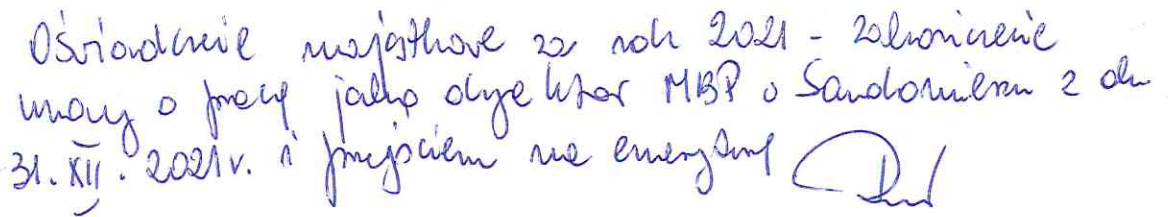 Oświadczenie majątkowe za rok 2021 - zakończenie
umowy o pracę jako dyrektor MBP w Sandomierzu z dn
31. XII. 2021r. i przejściem na emeryturę